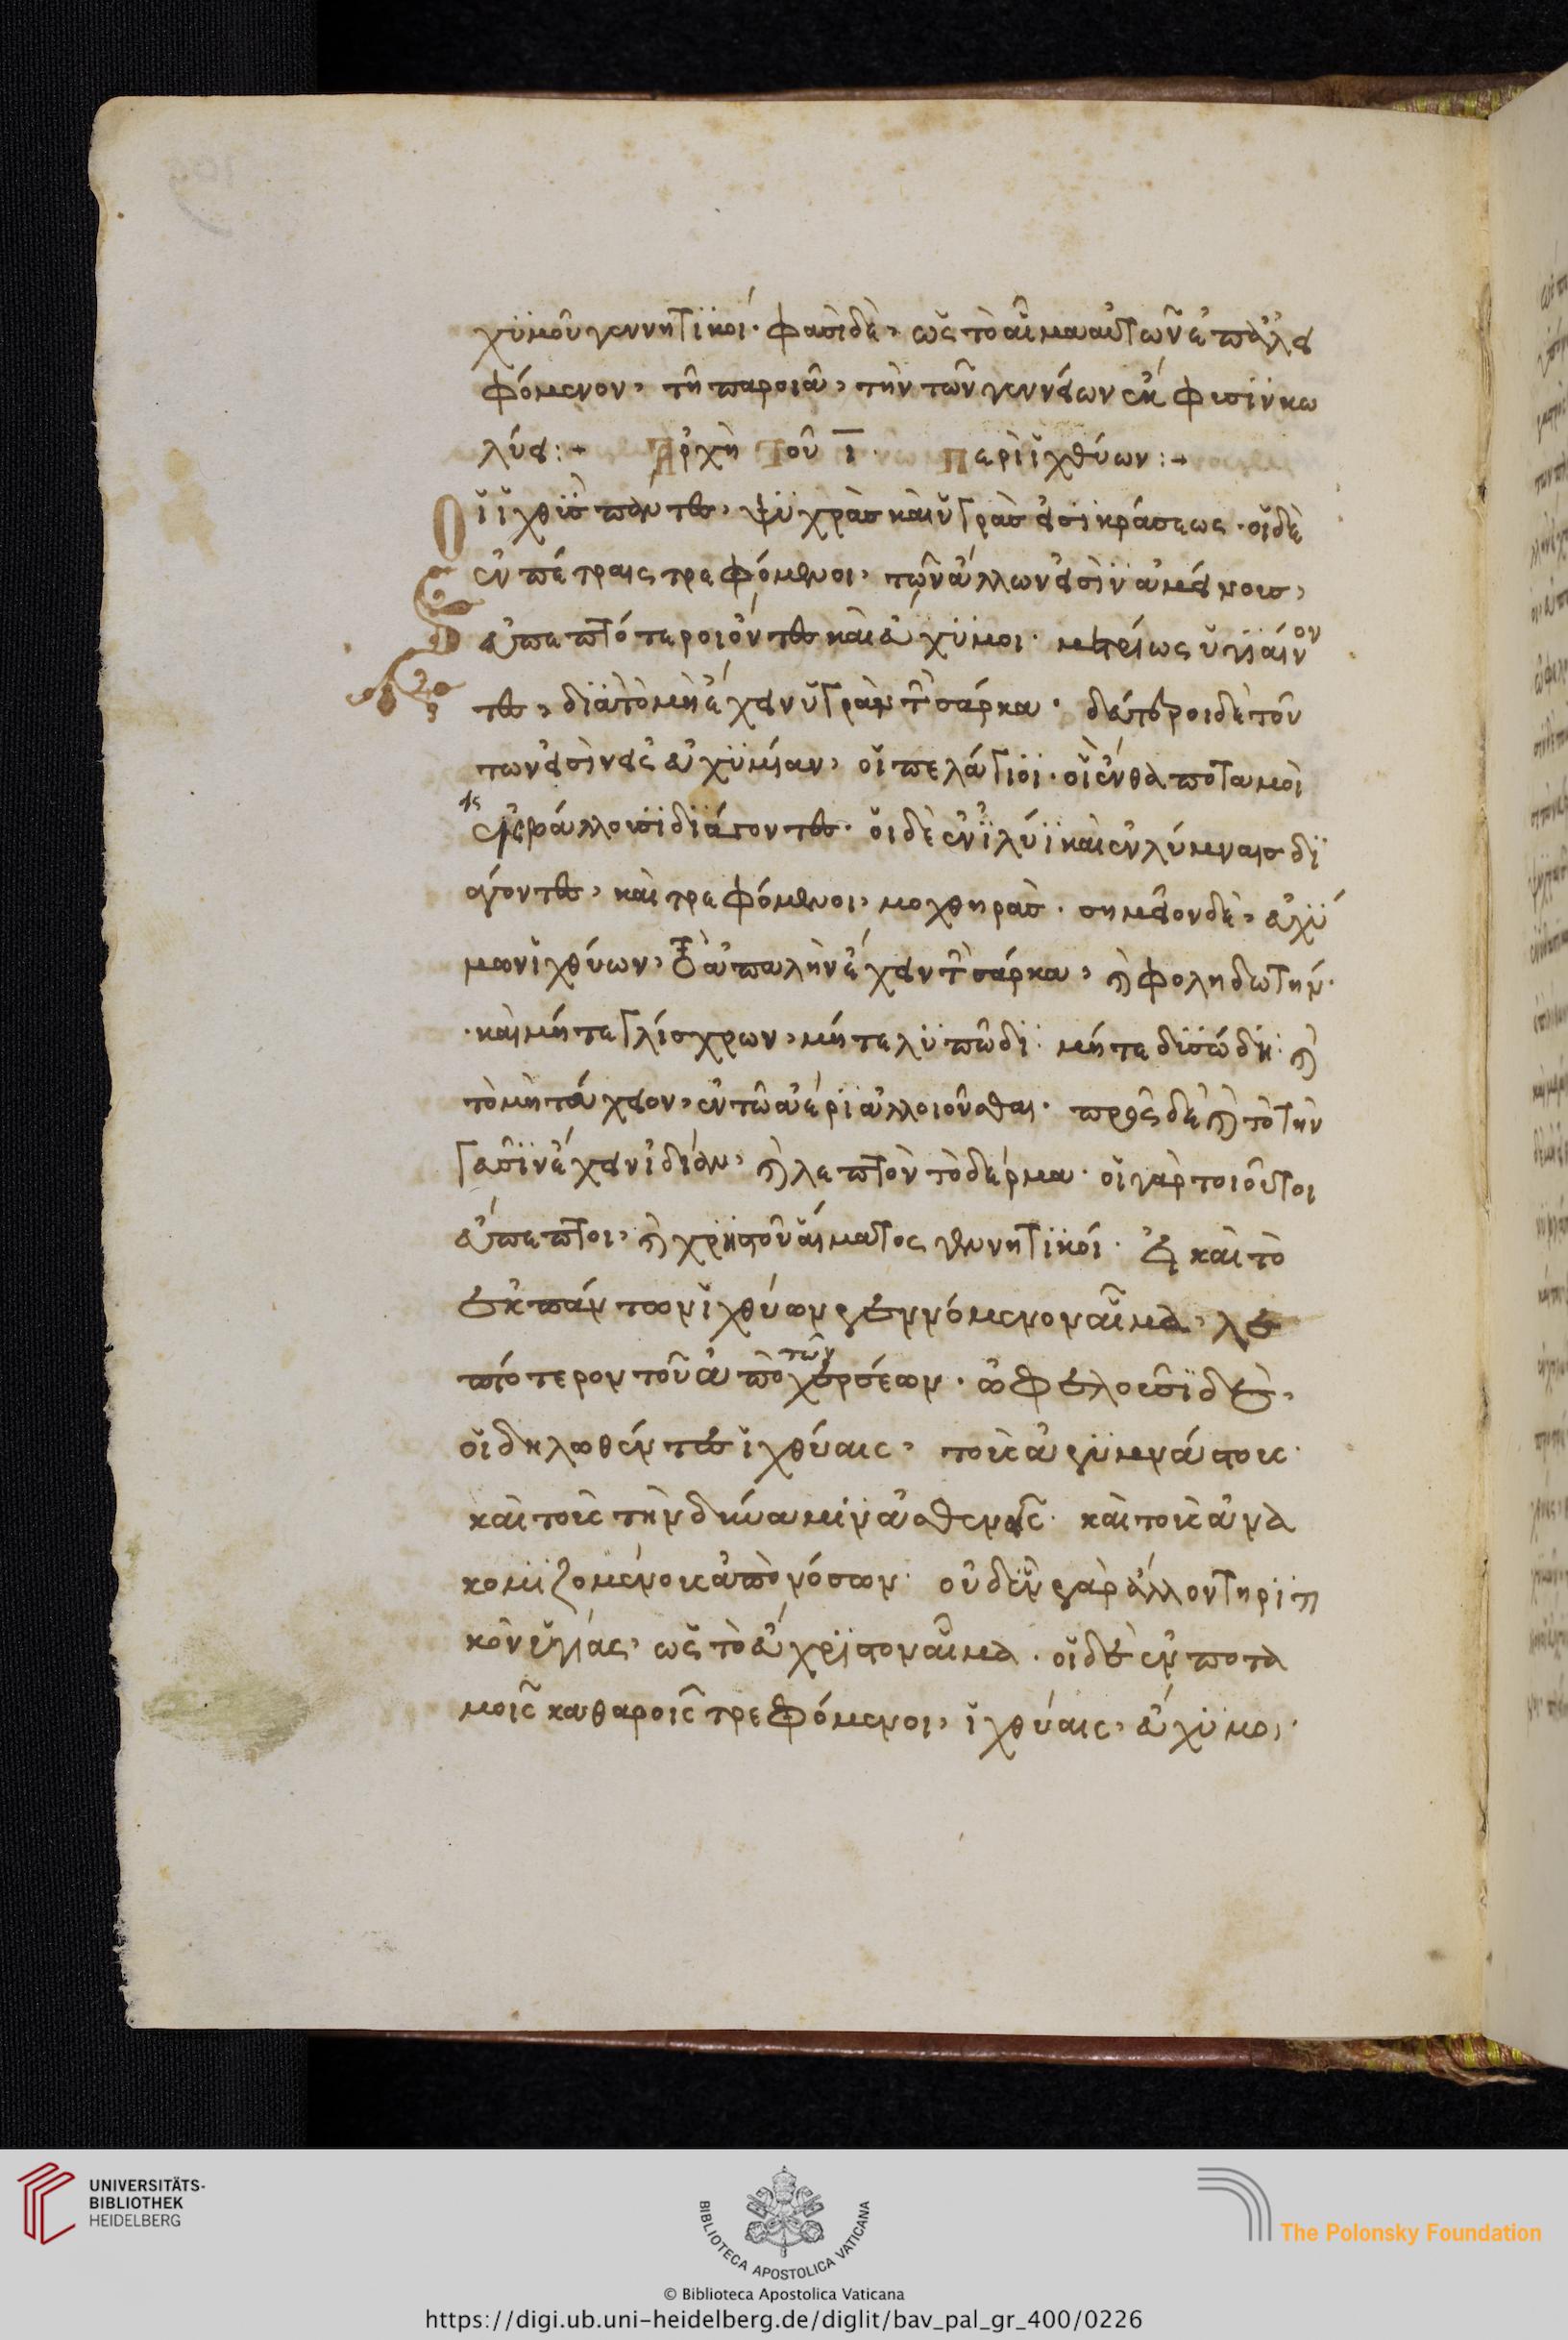 χϋμοῦ γεννητϊκοί· φασὶ δὲ, ὡς τὸ αἷμα αὐτῶν ἐπαλει
φόμενον, τῆ παροιᾶ, τὴν τῶν γεννείων ἐκ φυσϊν κω
λύει :→ Ἀρχὴ τοῦ ῑ· Περὶ ἰχθύων :→
Οἱ ἰχθὺς πάντες, ψϋχρὰς καὶ ὑγρὰς εἰσὶ κράσεως· οἱ δὲ
ἐν πέτραις τρεφόμενοι, τῶν ἄλλων εἰσὶν ἀμείνους,
εὐπεπτότεροι ὄντες καὶ εὔχϋμοι· μετρίως ὑγιαίνον
τες, διὰ τὸ μὴ ἔχειν ὑγρὰν τὴν σάρκα· δεύτεροι δὲ τού
των εἰσὶν εἰς εὐχϋμίαν, οἱ πελάγϊοι· οἱ ἔνθα ποταμοὶ
εἰσβάλλουσϊ διάγοντες· οἱ δὲ ἐν ἰλύϊ καὶ ἐν λύμναις δϊ
άγοντες, καὶ τρεφόμενοι, μοχθηρᾶς· σημεῖον δὲ, εὐχΰ
μων ἰχθύων, τὸ ἁπαλὴν ἔχειν τὴν σάρκα, καὶ φοληδωτήν·
·καὶ μήτε γλίσχρων, μήτε λϋπώδϊ· μήτε δϊσώδη· καὶ
τὸ μὴ τάχειον, ἐν τῶ ἀέρϊ ἀλλοιοῦσθαι· πρὸς δὲ καὶ τὸ τὴν
γεῦσϊν ἔχειν ἰδίαν, καὶ λεπτὸν τὸ δέρμα· οἱ γὰρ τοιοῦτοι
εὔπεπτοι, καὶ χρηστοῦ αἵματος γεννητϊκοί· καὶ τὸ
ἐκ πάντων ἰχθύων γεννόμενον αἷμα, λε
πτότερον τοῦ ἀπὸ τῶν χερσέων· ὠφελοῦσϊ δὲ,
οἱ δηλωθέντες ἰχθύαις, τοῖς ἀγϋμνάστοις·
καὶ τοῖς τὴν δηύαμϊν ἀσθενεῖς· καὶ τοῖς ἀνα
κομϊζομένοις ἀπὸ νόσων· οὐδὲν γὰρ ἄλλον τηρϊτι
κὸν ὑγιίας, ὡς τὸ εὔχρϊστον αἷμα· οἱ δὲ ἐν ποτα
μοῖς καθαροῖς τρεφόμενοι, ἰχθύαις, εὔχϋμοι·
UNIVERSITÄTS-
BIBLIOTHEK
HEIDELBERG
BIBLIOTECA APOSTOLICA VATICANA
The Polonsky Foundation
© Biblioteca Apostolica Vaticana
https://digi.ub.uni-heidelberg.de/diglit/bav_pal_gr_400/0226